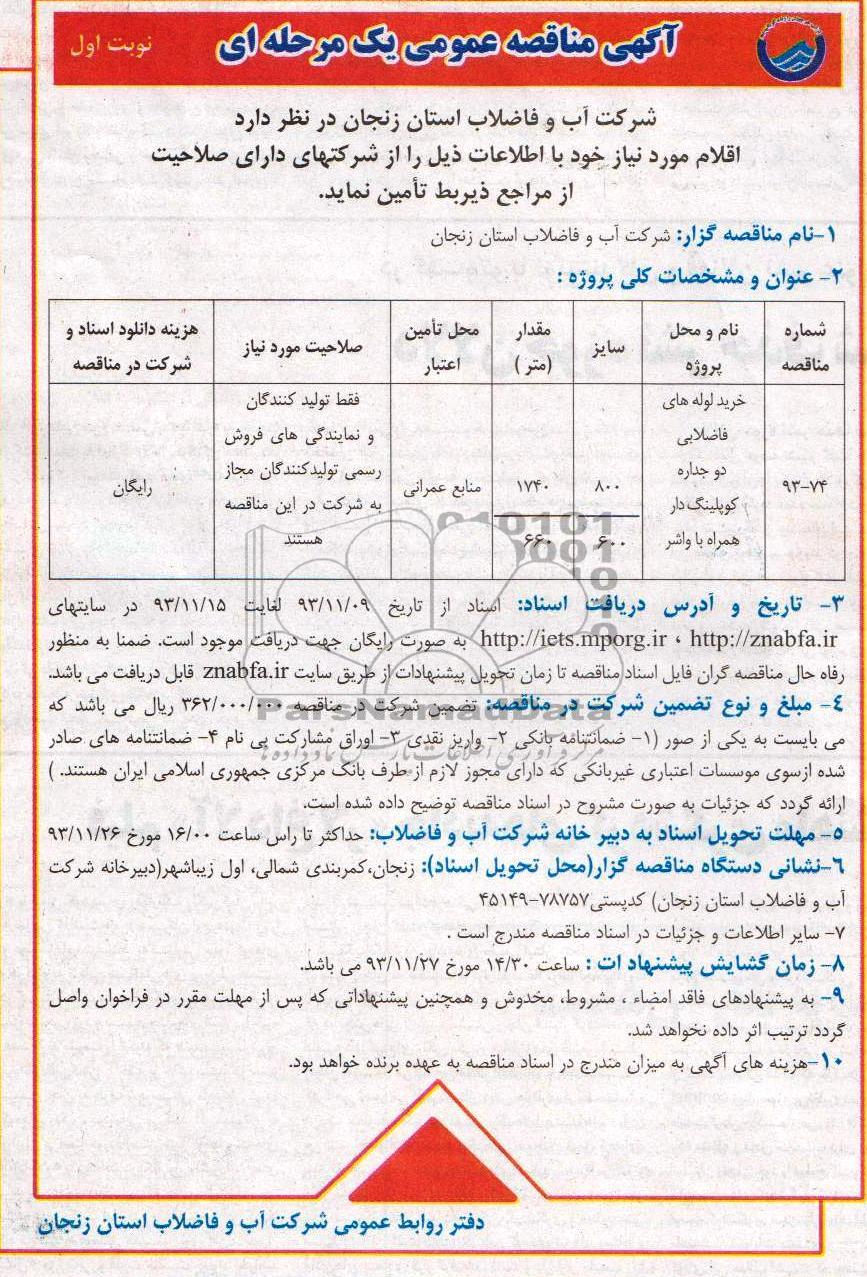 آگهی مناقصه عمومی یک مرحله ای
نوبت اول
شرکت آب و فاضلاب استان زنجان در نظر دارد
اقلام مورد نیاز خود با اطلاعات ذیل را از شرکتهای دارای صلاحیت
از مراجع ذیربط تأمین نماید.
۱-نام مناقصه گزار: شرکت آب و فاضلاب استان زنجان
۲- عنوان و مشخصات کلی پروژه :
شماره مناقصه
نام و محل پروژه
سایز
مقدار (متر )
محل تأمین اعتبار
صلاحیت مورد نیاز
هزینه دانلود اسناد و شرکت در مناقصه
۹۳-۷۴
خرید لوله های
فاضلابی
دو جداره
کوپلینگ دار
همراه با واشر
۸۰۰
۶۰۰
۱۷۴۰
۶۶۰
منابع عمرانی
فقط تولید کنندگان
و نمایندگی های فروش
رسمی تولیدکنندگان مجاز
به شرکت در این مناقصه
هستند
رایگان
۳- تاریخ و آدرس دریافت اسناد: اسناد از تاریخ ۹۳/۱۱/۰۹ لغایت ۹۳/۱۱/۱۵ در سایتهای
http://znabfa.ir ، http://iets.mporg.ir به صورت رایگان جهت دریافت موجود است. ضمنا به منظور
رفاه حال مناقصه گران فایل اسناد مناقصه تا زمان تحویل پیشنهادات از طریق سایت znabfa.ir قابل دریافت می باشد.
۴- مبلغ و نوع تضمین شرکت در مناقصه: تضمین شرکت در مناقصه ۳۶۲/۰۰۰/۰۰۰ ریال می باشد که
می بایست به یکی از صور (۱- ضمانتنامه بانکی ۲- واریز نقدی ۳- اوراق مشارکت بی نام ۴- ضمانتنامه های صادر
شده ازسوی موسسات اعتباری غیربانکی که دارای مجوز لازم از طرف بانک مرکزی جمهوری اسلامی ایران هستند. )
ارائه گردد که جزئیات به صورت مشروح در اسناد مناقصه توضیح داده شده است.
۵- مهلت تحویل اسناد به دبیر خانه شرکت آب و فاضلاب: حداکثر تا راس ساعت ۱۶/۰۰ مورخ ۹۳/۱۱/۲۶
۶-نشانی دستگاه مناقصه گزار(محل تحویل اسناد): زنجان،کمربندی شمالی، اول زیباشهر(دبیرخانه شرکت
آب و فاضلاب استان زنجان) کدپستی۷۸۷۵۷-۴۵۱۴۹
۷- سایر اطلاعات و جزئیات در اسناد مناقصه مندرج است .
۸- زمان گشایش پیشنهاد ات : ساعت ۱۴/۳۰ مورخ ۹۳/۱۱/۲۷ می باشد.
۹- به پیشنهادهای فاقد امضاء ، مشروط، مخدوش و همچنین پیشنهاداتی که پس از مهلت مقرر در فراخوان واصل
گردد ترتیب اثر داده نخواهد شد.
۱۰-هزینه های آگهی به میزان مندرج در اسناد مناقصه به عهده برنده خواهد بود.
دفتر روابط عمومی شرکت آب و فاضلاب استان زنجان
ParsNamadData